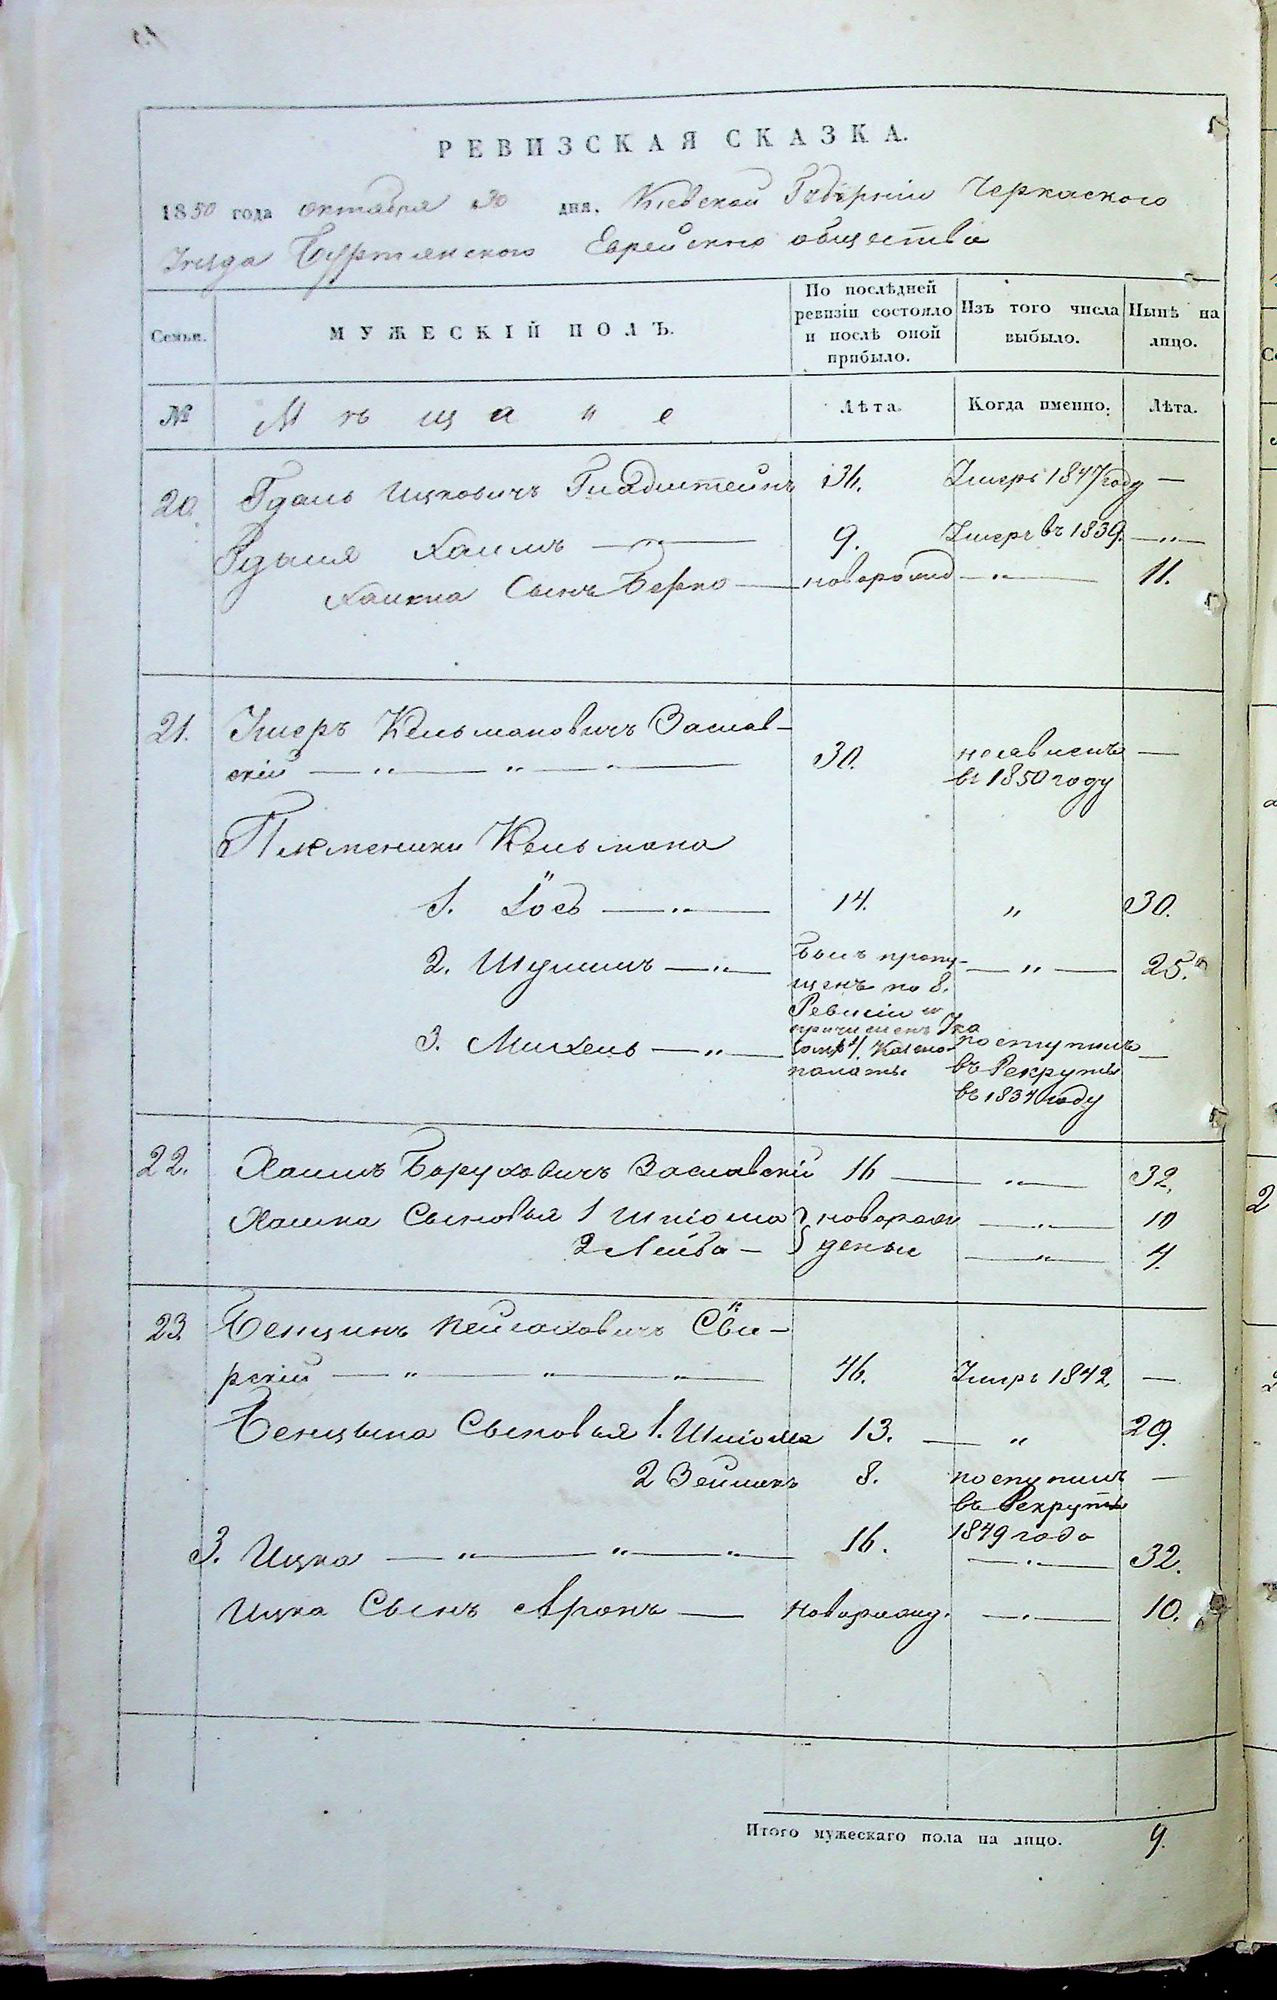 РЕВИЗСКАЯ СКАЗКА.
1850 года октября 30 дня, Киевской Губернии Черкаского
Уезда Буртянского Еврейского общества
Семьи. МУЖЕСКІЙ ПОЛЪ. По послѣдней ревизіи состояло и послѣ оной прибыло. Изъ того числа выбыло. Нынѣ на лицо.
№ М ѣ щ а н е Лѣта. Когда именно. Лѣта.
20. Гдаль Ицковичъ Гладштейнъ 31. Умеръ 1847 году —
Гдаля Хаимъ — 9. Умеръ въ 1839. — „ —
Хаима Сынъ Берко — новорожд — „ — 11.
21. Кельмановичъ Заслав-
скій — „ — „ — „ — 30. неявленъ —
въ 1850 году
Племеники Кельмана
1. Іось — „ — 14. „ 30.
2. Шулимъ — „ — былъ пропу- — „ — 25.
щенъ по 8.
Ревизіи и
3. Михель — „ — причисленъ Ука поступилъ —
Казено въ Рекруты
палаты въ 1834 году
22. Хаимъ Боруховичъ Заславскій 16 — „ — 32.
Хаима Сыновья 1 Шлiома } новорож — „ — 10
2 Лейба — } деные — „ — 4.
23. Бенцинъ Пейсаховичъ Сви-
рскій — „ — „ — „ — 46. Умеръ 1842 —
Бенцына Сыновья 1. Шлiома 13. — „ 29.
2 Зейликъ 8. поступилъ —
въ Рекруты
3. Ицка — „ — „ — „ — 16. 1849 года
— „ — 32.
Ицка Сынъ Аронъ — Новорожд. — „ — 10.
Итого мужескаго пола на лицо. 9.